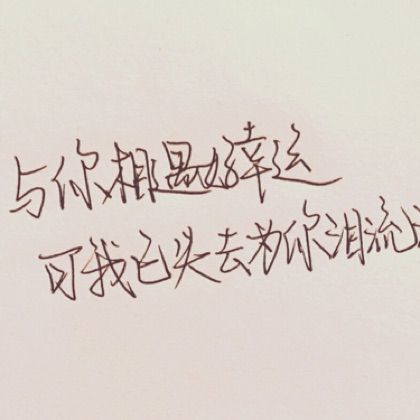 与你相遇好幸运
可我已失去为你泪流